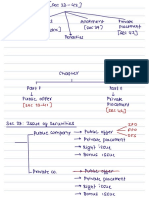 [Sec 23-42]
Allotment
[Sec 39]
Private
Placement
[Sec 42]
Penalties
Chapter
Part I
Public offer
[Sec 23-41]
Part II
Private
Placement
[Sec 42]
Sec 23: Issue of Securities
Public company
Public offer
IPO
FPO
OFS
Private placement
Right issue
Bonus issue
Private co.
Public offer
Private placement
Right issue
Bonus issue